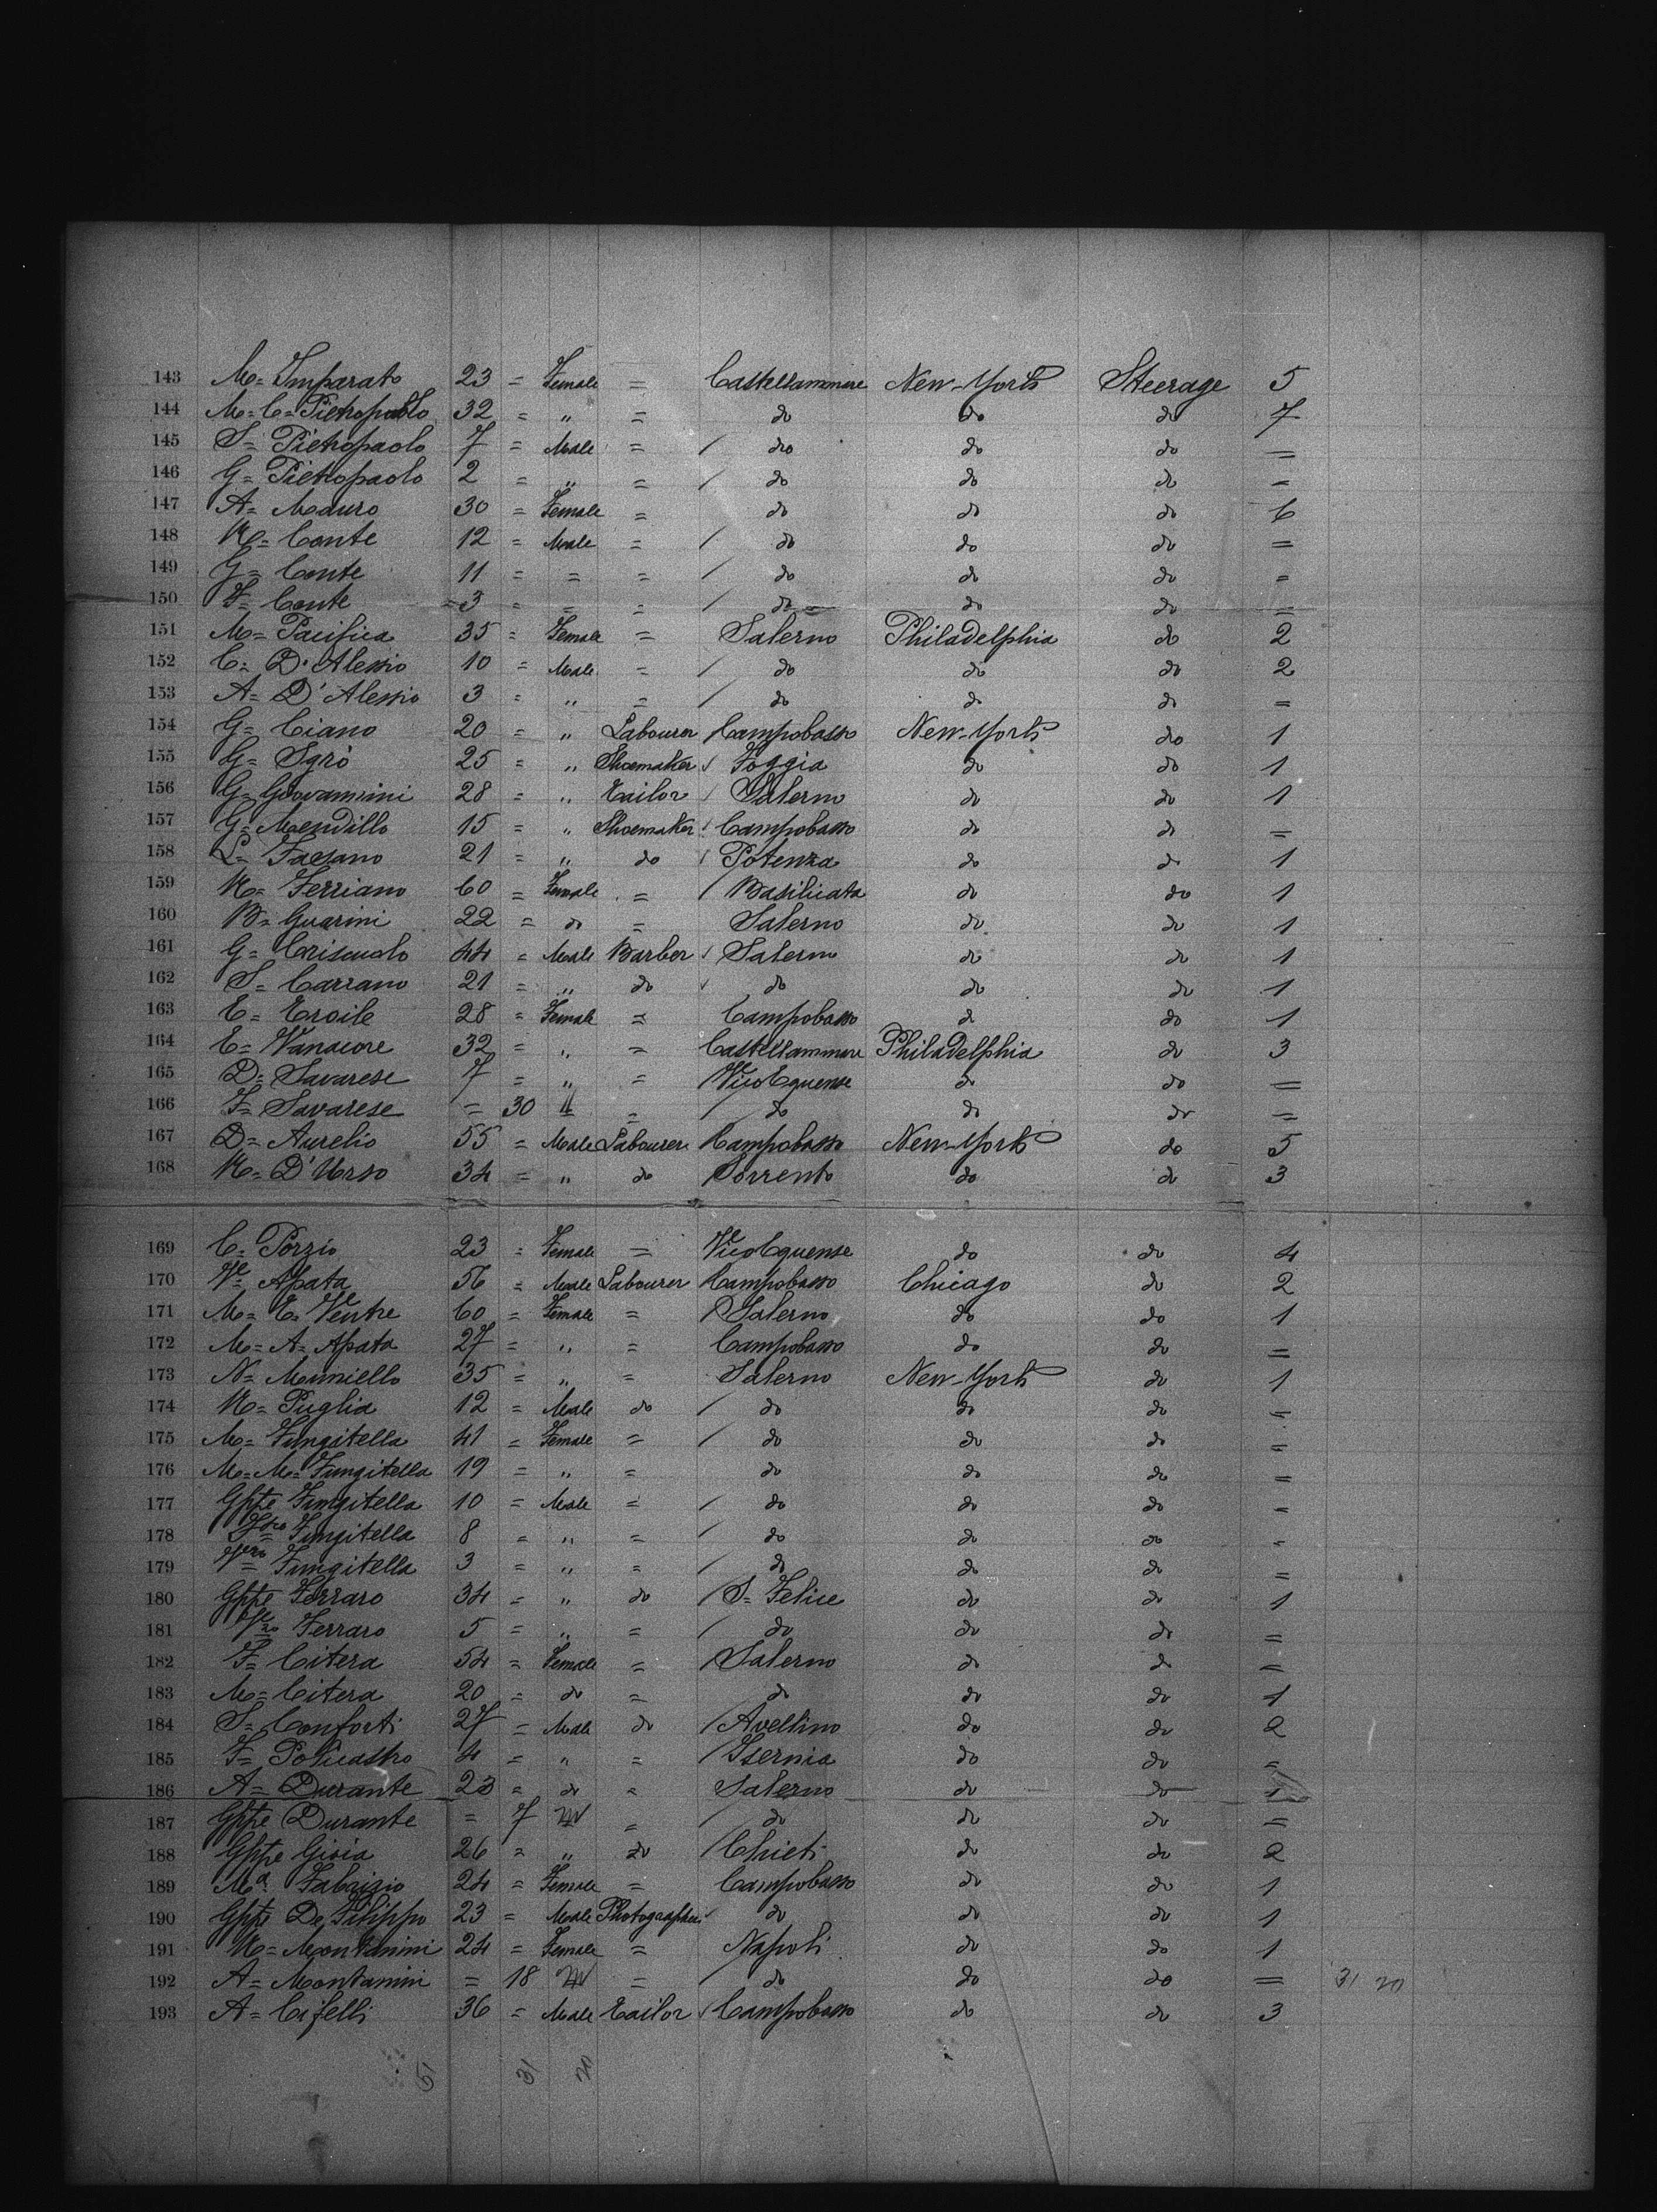 143 M= Imparato 23 = Female = Castellammare New-York Steerage 5
144 M= C= Pietropaolo 32 = " = do do do 7
145 S= Pietropaolo 7 = Male = / do do do =
146 G= Pietropaolo 2 = " = / do do do =
147 A= Maduro 30 = Female = do do do 6
148 R= Conte 12 = Male = / do do do =
149 G= Conte 11 = = = / do do do =
150 F= Conte =3 = = = / do do do =
151 M= Pacifica 35 = Female = Salerno Philadelphia do 2
152 C= D'Alessio 10 = Male = / do do do 2
153 A= D'Alessio 3 = " = / do do do =
154 G= Ciano 20 = " Labourer / Campobasso New-York do 1
155 G= Sgrò 25 = " Shoemaker / Foggia do do 1
156 G= Giovannini 28 = " Tailor / Salerno do do 1
157 G= Mendillo 15 = " Shoemaker / Campobasso do do =
158 L= Fasano 21 = " do / Potenza do do 1
159 R= Ferriano 60 = Female = / Basilicata do do 1
160 B= Guarini 22 = do = Salerno do do 1
161 G= Criscuolo 44 = Male Barber / Salerno do do 1
162 S= Carrano 21 = " do / do do do 1
163 E= Ercile 28 = Female = Campobasso do do 1
164 E= Vanacore 32 = " = Castellammare Philadelphia do 3
165 D= Savarese 7 = " = Vico Equense do do =
166 F= Savarese = 30 = / do do do =
167 D= Aurelio 55 = Male Labourer / Campobasso New-York do 5
168 R= D'Urso 34 = " do / Sorrento do do 3
169 C= Porzio 23 = Female = Vico Equense do do 4
170 Apata 56 = Male Labourer / Campobasso Chicago do 2
171 M= C. Ventre 60 = Female = / Salerno do do 1
172 M= A= Apata 27 = " = Campobasso do do =
173 N= Minniello 35 = " = Salerno New-York do 1
174 R= Puglia 12 = Male do / do do do =
175 M= Fungitella 41 = Female = / do do do =
176 M= M= Fungitella 19 = " = do do do =
177 Gppe Fungitella 10 = Male = / do do do =
178 Fungitella 8 = " = / do do do =
179 Fungitella 3 = " = / do do do =
180 Gppe Ferraro 34 = " do / S= Felice do do 1
181 Ferraro 5 = " = / do do do =
182 F= Citera 54 = Female = / Salerno do do =
183 M= Citera 20 = do = do do do 1
184 S= Conforti 27 = Male do / Avellino do do 2
185 F= Policastro 4 = " = / Isernia do do =
186 A= Durante 23 = do = Salerno do do 1
187 Gppe Durante = 7 = / do do do =
188 Gppe Gioia 26 = " do / Chieti do do 2
189 Ma Fabrizio 24 = Female = Campobasso do do 1
190 Gppe De Filippo 23 = Male Photographer / do do do 1
191 R= Montanini 24 = Female = Napoli do do 1
192 A= Montanini = 18 = / do do do = 31 20
193 A= Cifelli 36 = Male Tailor / Campobasso do do 3